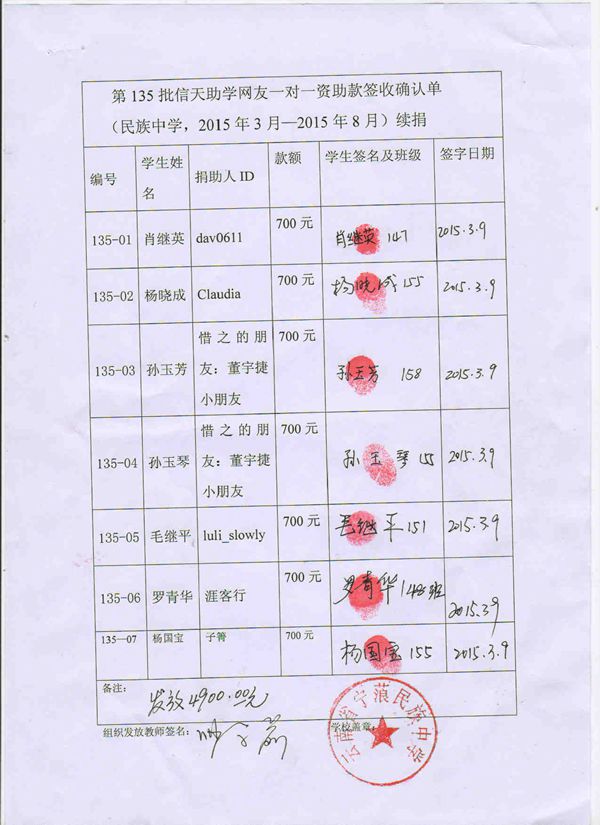 第 135 批信天助学网友一对一资助款签收确认单
（民族中学，2015 年 3 月—2015 年 8 月）续捐
编号 学生姓名 捐助人 ID 款额 学生签名及班级 签字日期
135-01 肖继英 dav0611 700 元 肖继英 147 2015.3.9
135-02 杨晓成 Claudia 700 元 杨晓成 155 2015.3.9
135-03 孙玉芳 惜之的朋友：董宇捷小朋友 700 元 孙玉芳 158 2015.3.9
135-04 孙玉琴 惜之的朋友：董宇捷小朋友 700 元 孙玉琴 155 2015.3.9
135-05 毛继平 luli_slowly 700 元 毛继平 151 2015.3.9
135-06 罗青华 涯客行 700 元 罗青华 148班 2015.3.9
135—07 杨国宝 子箐 700 元 杨国宝 155 2015.3.9
备注：
发放4900.00元
组织发放教师签名：
学校盖章：
云南省宁蒗民族中学